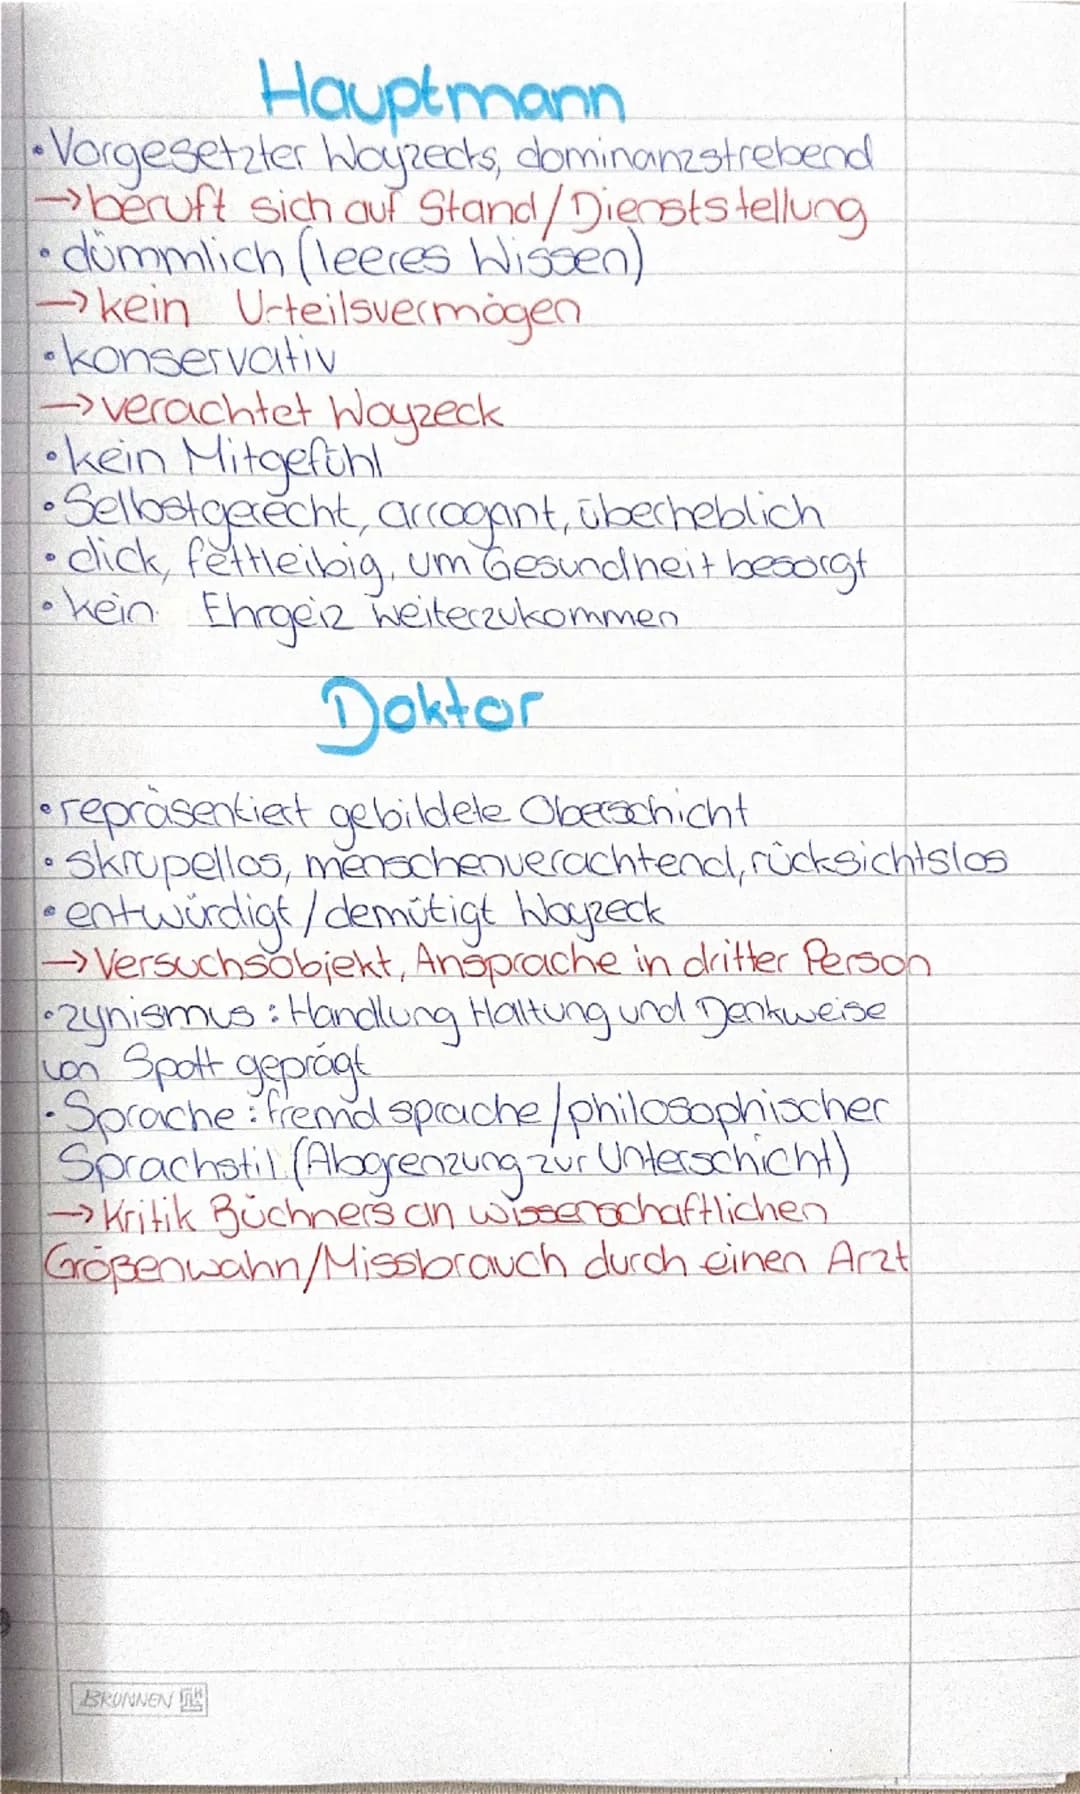 Hauptmann
• Vorgesetzter Woyzecks, dominanzstrebend
→ beruft sich auf Stand/Dienststellung
• dümmlich (leeres Wissen)
→ kein Urteilsvermögen
• konservativ
→ verachtet Woyzeck
• kein Mitgefühl
• Selbstgerecht, arrogant, überheblich
• dick, fettleibig, um Gesundheit besorgt
• kein Ehrgeiz weiterzukommen
Doktor
• repräsentiert gebildete Oberschicht
• skrupellos, menschenverachtend, rücksichtslos
• entwürdigt/demütigt Woyzeck
→ Versuchsobjekt, Ansprache in dritter Person
• zynismus: Handlung Haltung und Denkweise
von Spott geprägt
• Sprache: fremdsprache/philosophischer
Sprachstil (Abgrenzung zur Unterschicht)
→ Kritik Büchners an wissenschaftlichen
Größenwahn/Missbrauch durch einen Arzt
BRUNNEN